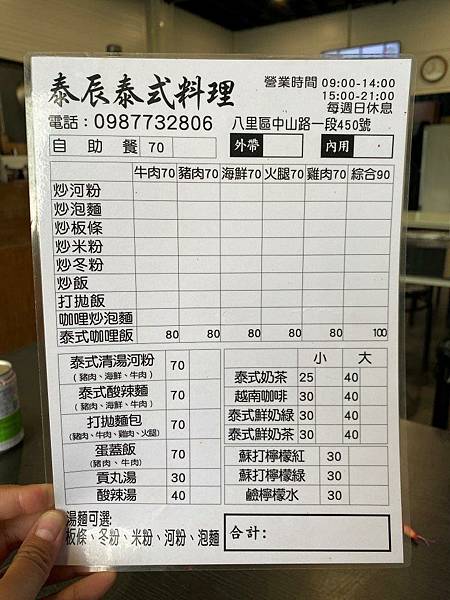 泰辰泰式料理
營業時間 09:00-14:00
15:00-21:00
每週日休息
電話：0987732806 八里區中山路一段450號
自助餐 70 外帶 內用
牛肉70 豬肉70 海鮮70 火腿70 雞肉70 綜合90
炒河粉
炒泡麵
炒板條
炒米粉
炒冬粉
炒飯
打拋飯
咖哩炒泡麵
泰式咖哩飯 80 80 80 80 80 100
泰式清湯河粉 70
(豬肉、海鮮、牛肉)
泰式酸辣麵 70
(豬肉、海鮮、牛肉)
打拋麵包 70
(豬肉、牛肉、雞肉、火腿)
蛋蓋飯 70
(豬肉、牛肉)
貢丸湯 30
酸辣湯 40
小 大
泰式奶茶 25 40
越南咖啡 30 40
泰式鮮奶綠 30 40
泰式鮮奶茶 30 40
蘇打檸檬紅 30
蘇打檸檬綠 30
鹹檸檬水 30
湯麵可選:
板條、冬粉、米粉、河粉、泡麵
合計: